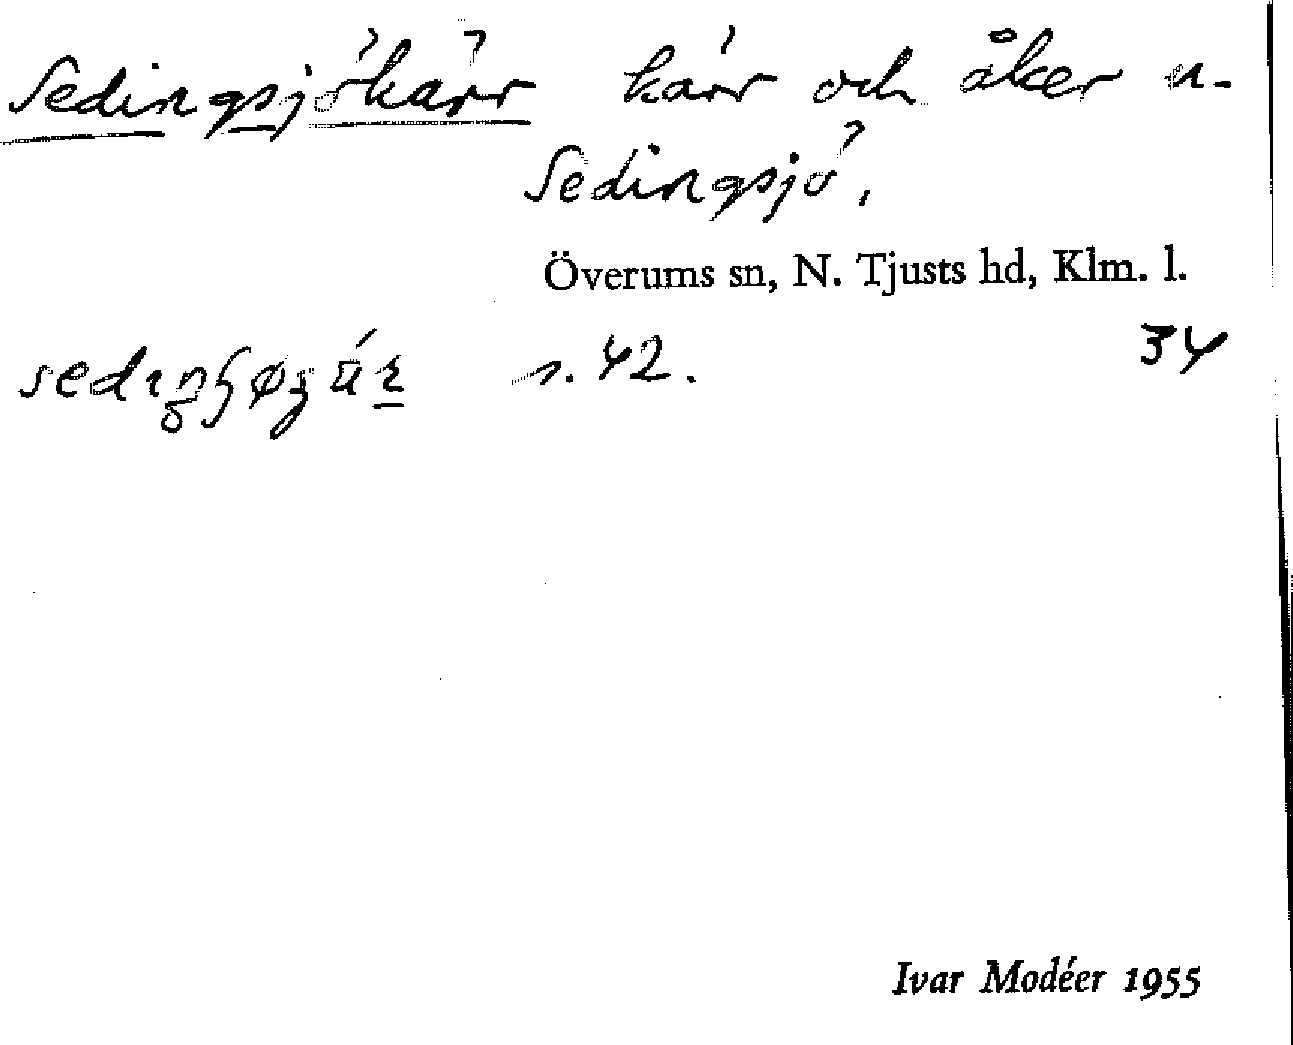 Sedingsjökärr kärr och åker u.
Sedingsjö.
Överums sn, N. Tjusts hd, Klm. l.
s. 42. 34
Ivar Modéer 1955